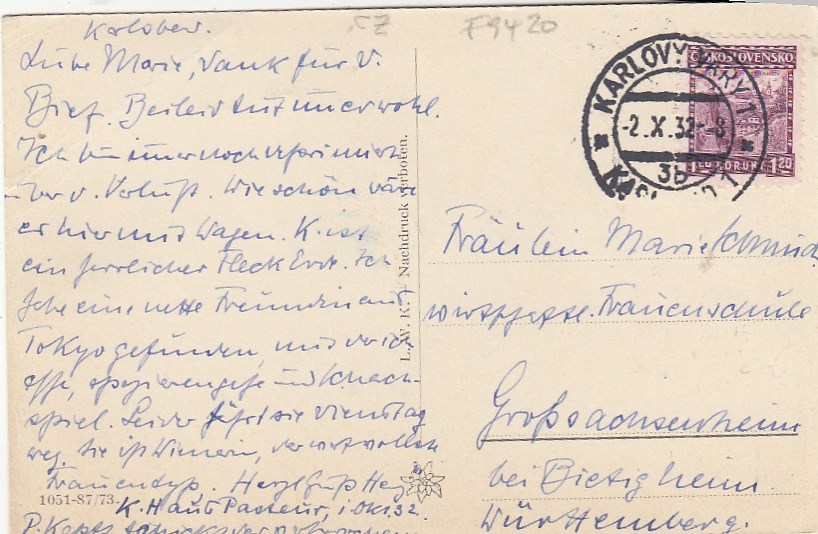 CZ F9420
Karlsbad.
Liebe Marie, Dank für D.
Brief. Beileid tut immer wohl.
Ich bin immer noch deprimiert
über d. Verlust. Wie schön wäre
er hier mit Wagen. K. ist
ein herrlicher Fleck Erde. Ich
habe eine nette Freundin aus
Tokyo gefunden, mit der ich
esse, spazierengehe und Schach-
spiel. Leider fährt sie Dienstag
weg. Sie ist Wienerin, der wertvollste
Frauentyp. Herzl. Gruß
1051-87/73.
K. Haus Pasteur, 1. Okt. 32.
L. W. K. - Nachdruck verboten.
KARLOVY VARY 1
-2.X.32.-8
3b
ČESKOSLOVENSKO
KORUNA 1.20
Fräulein Marie Schmid
wirtschaftl. Frauenschule
Großsachsenheim
bei Bietigheim
Württemberg.